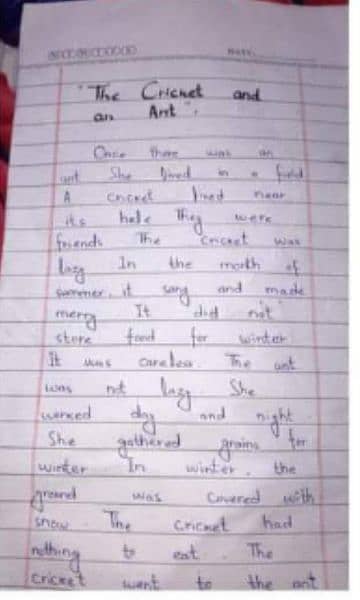 "The Cricket and
an Ant".
Once there was an
ant She lived in a field
A cricket lived near
its hole They were
friends The Cricket was
lazy In the month of
summer, it sang and made
merry It did not
store food for winter
It was careless. The ant
was not lazy. She
worked day and night
She gathered grains for
winter In winter, the
ground was Covered with
snow The Cricket had
nothing to eat. The
cricket went to the ant